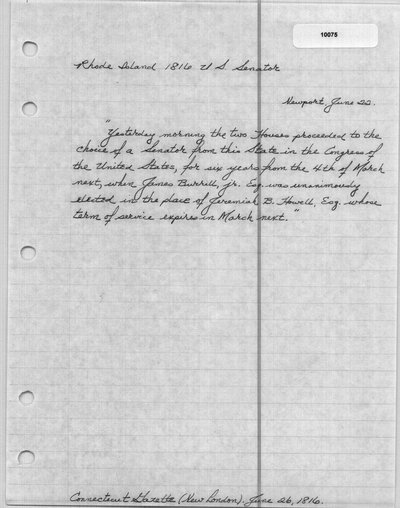 10075
Rhode Island 1816 U.S. Senator
Newport, June 22.
"Yesterday morning the two Houses proceeded to the
choice of a Senator from this State in the Congress of
the United States, for six years from the 4th of March
next, when James Burrill, jr. Esq. was unanimously
elected in the place of Jeremiah B. Howell, Esq. whose
term of service expires in March next."
Connecticut Gazette (New London). June 26, 1816.